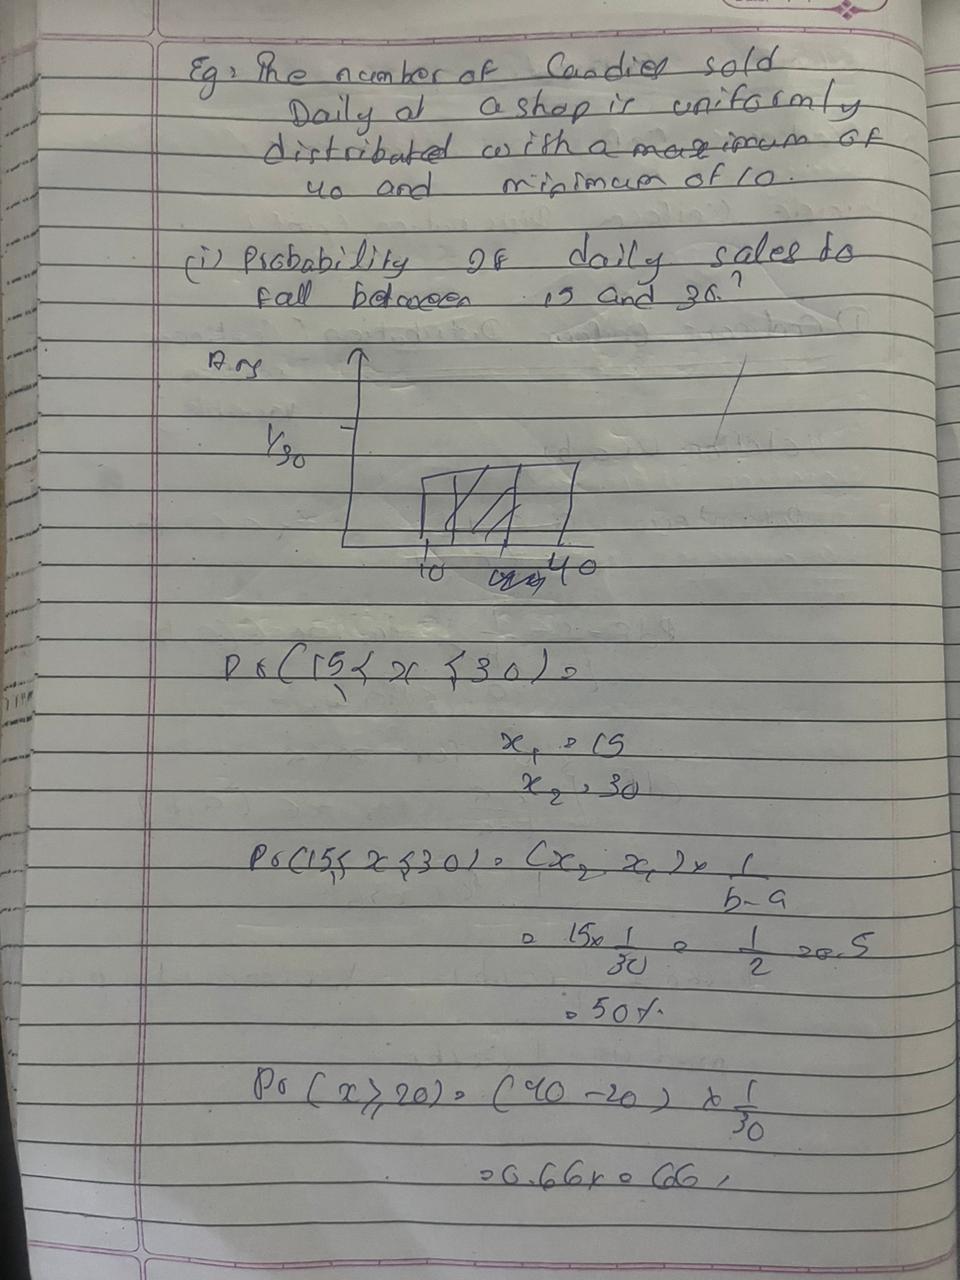 Eg: The number of Candies sold
Daily at a shop is uniformly
distributed with a maximum of
40 and minimum of 10.
(i) Probability of daily sales to
fall between 15 and 30?
Ans
1/30
10
40
Pr(15 ≤ x ≤ 30) =
x₁ = 15
x₂ = 30
Pr(15 ≤ x ≤ 30) = (x₂ - x₁) × 1/b-a
= 15 × 1/30 = 1/2 = 0.5
= 50%
Pr (x ≥ 20) = (40 - 20) × 1/30
= 0.66 = 66